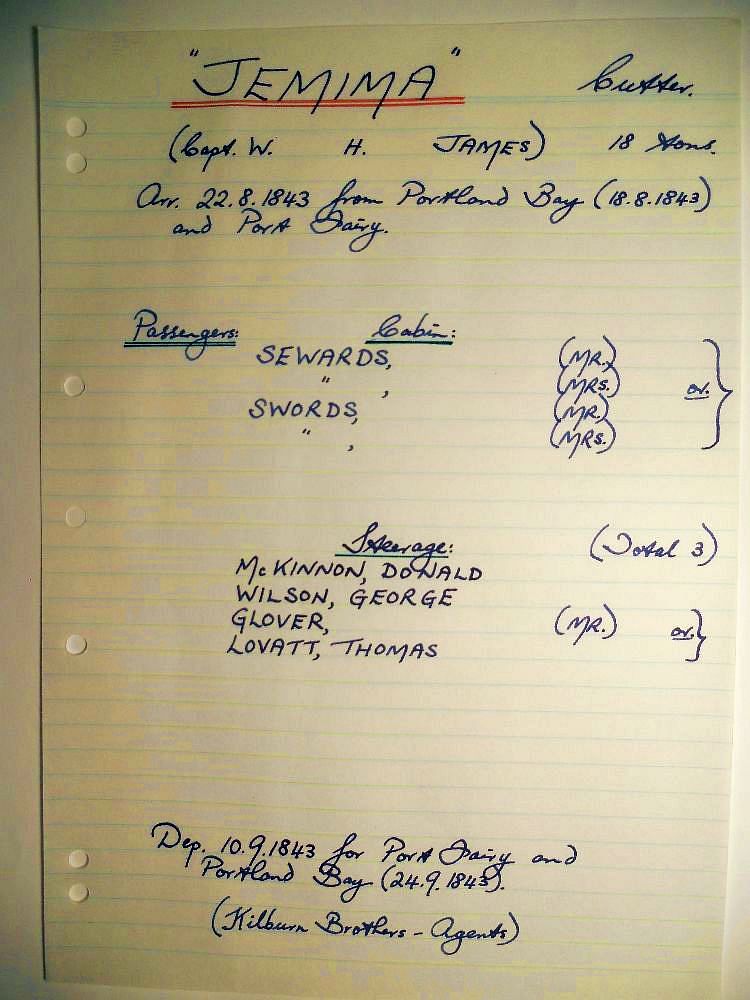 "JEMIMA" Cutter.
(Capt. W. H. JAMES) 18 tons.
Arr. 22.8.1843 from Portland Bay (18.8.1843)
and Port Fairy.
Passengers: Cabin:
SEWARDS, (MR.)
" , (MRS.) or. }
SWORDS, (MR.)
" , (MRS.)
Steerage: (Total 3)
McKINNON, DONALD
WILSON, GEORGE
GLOVER, (MR.) or. }
LOVATT, THOMAS
Dep. 10.9.1843 for Port Fairy and
Portland Bay (24.9.1843).
(Kilburn Brothers - Agents)